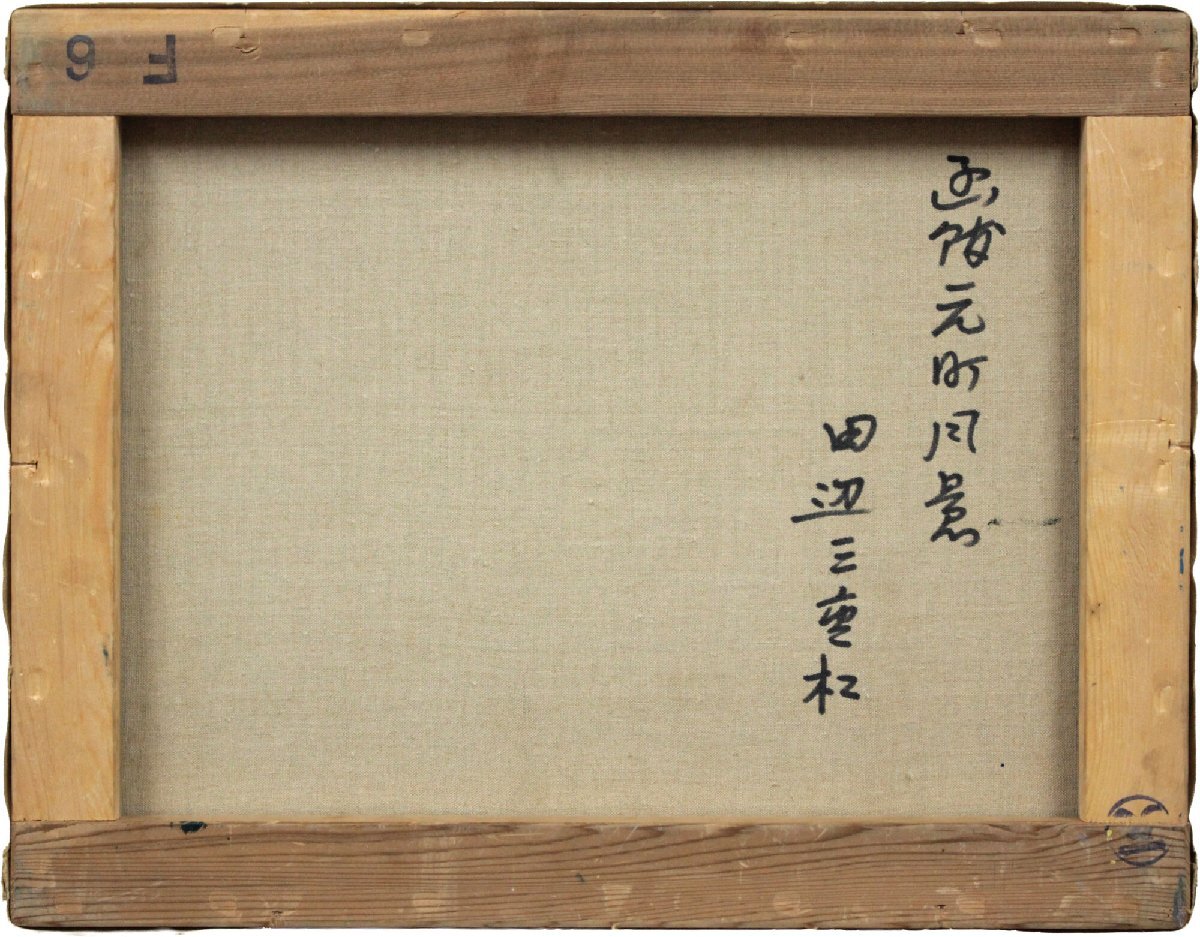 函館元町風景
田辺三重松
F6